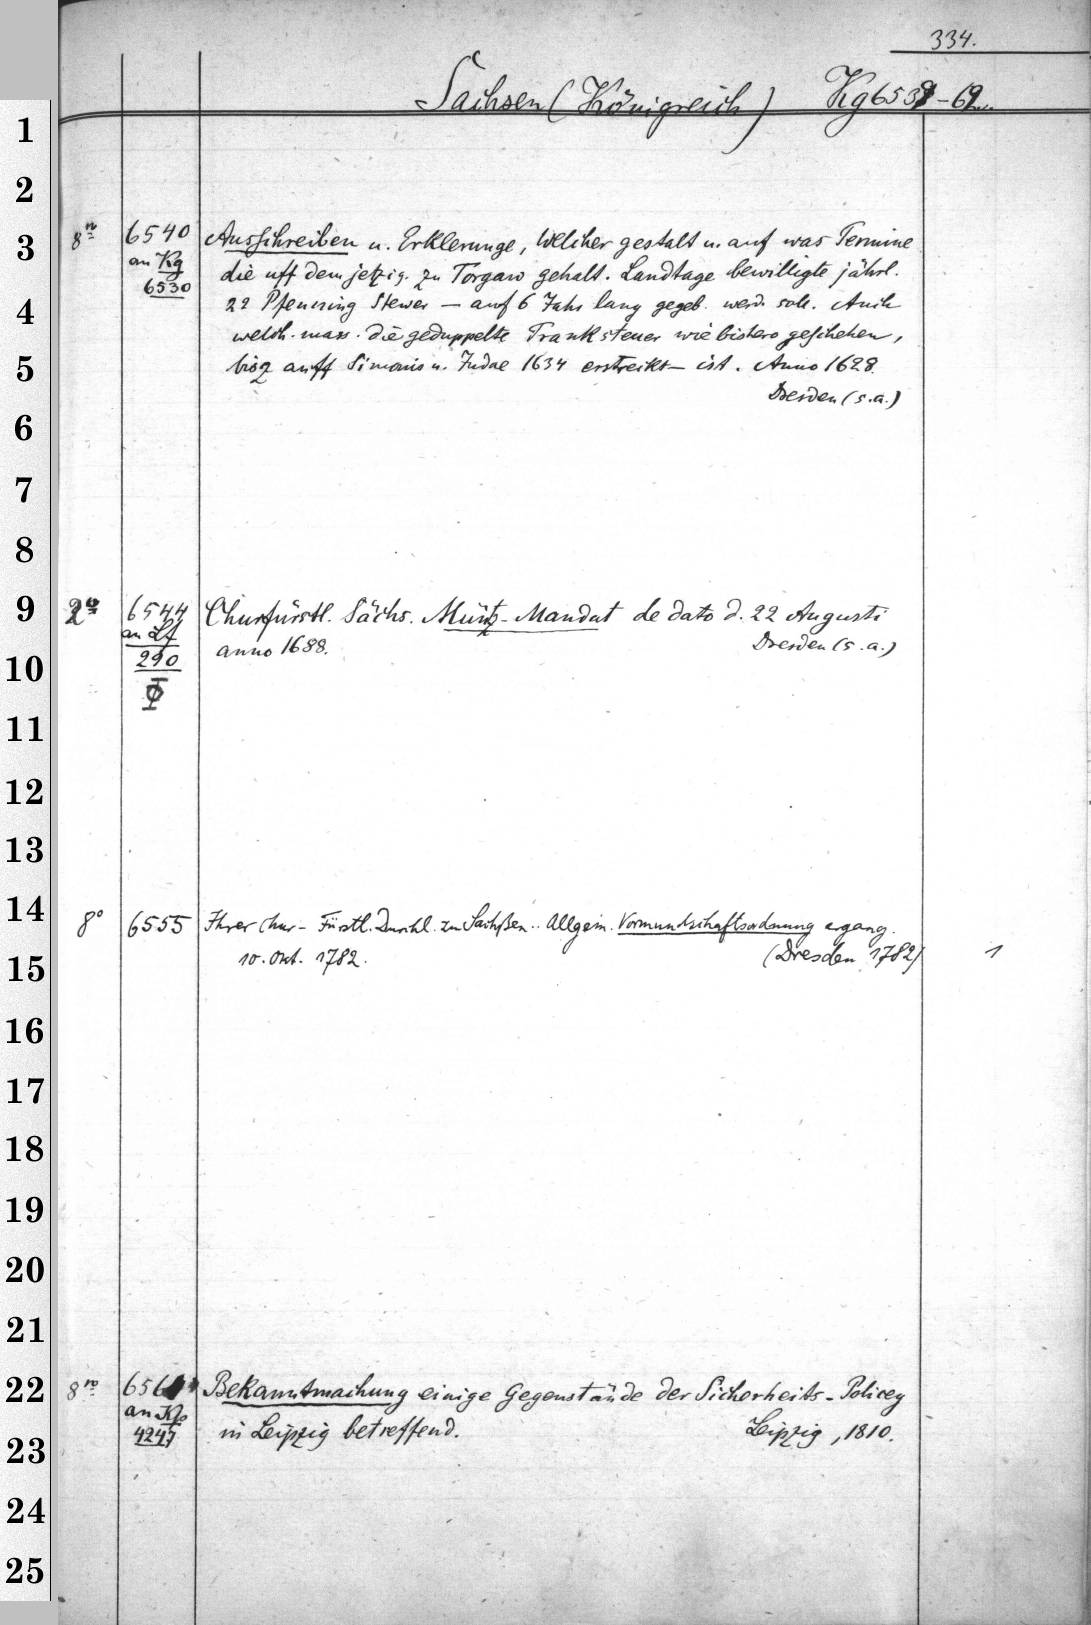 334.
Sachsen (Königreich) Kg 6539-69
8º 6540 Ausschreiben u. Erklerunge, Welcher gestalt u. auf was Termine
an Kg die uff dem jetzig. zu Torgaw gehalt. Landtage bewilligte jährl.
6530 22 Pfenning Stewer — auf 6 Jahr lang gegeb. werd. soll. Auch
welch. mass. die geduppelte Tranksteuer wie bishero geschehen,
bisz auff Simonis u. Judae 1634 erstreckt — ist. Anno 1628.
Dresden (s.a.)
2º 6544 Churfürstl. Sächs. Müntz-Mandat de dato d. 22 Augusti
an Lf anno 1688. Dresden (s.a.)
290
8º 6555 Ihrer Chur-Fürstl. Durchl. zu Sachßen.. Allgem. Vormundschaftsordnung ergang.
10. Okt. 1782. (Dresden 1782) 1
8º Bekanntmachung einige Gegenstände der Sicherheits-Policey
4247 in Leipzig betreffend. Leipzig, 1810.
1
2
3
4
5
6
7
8
9
10
11
12
13
14
15
16
17
18
19
20
21
22
23
24
25